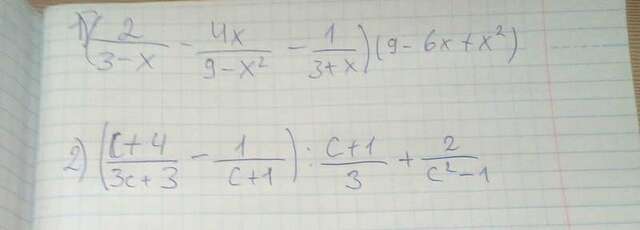 1) (2/(3-x) - 4x/(9-x²) - 1/(3+x)) (9-6x+x²)
2) ((c+4)/(3c+3) - 1/(c+1)) : (c+1)/3 + 2/(c²-1)